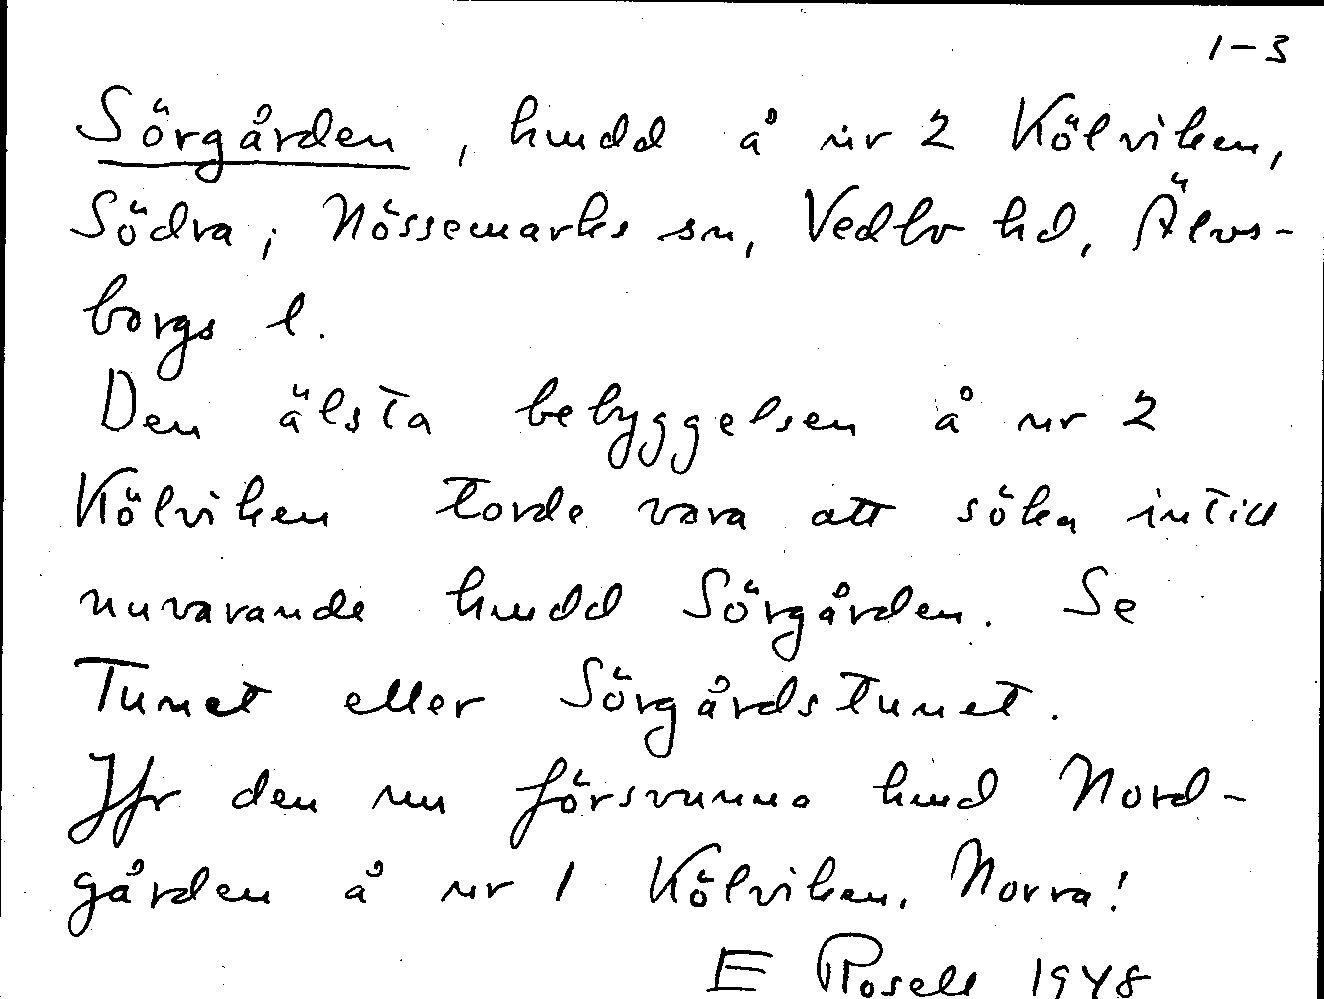 1-3
Sörgården, hmdd å nr 2 Kölviken,
Södra; Nössemarks sn, Vedbo hd, Älvs-
borgs l.
Den älsta bebyggelsen å nr 2
Kölviken torde vara att söka intill
nuvarande hmdd Sörgården. Se
Tunet eller Sörgårdstunet.
Jfr den nu försvunna hmd Nord-
gården å nr 1 Kölviken, Norra!
E Rosell 1948